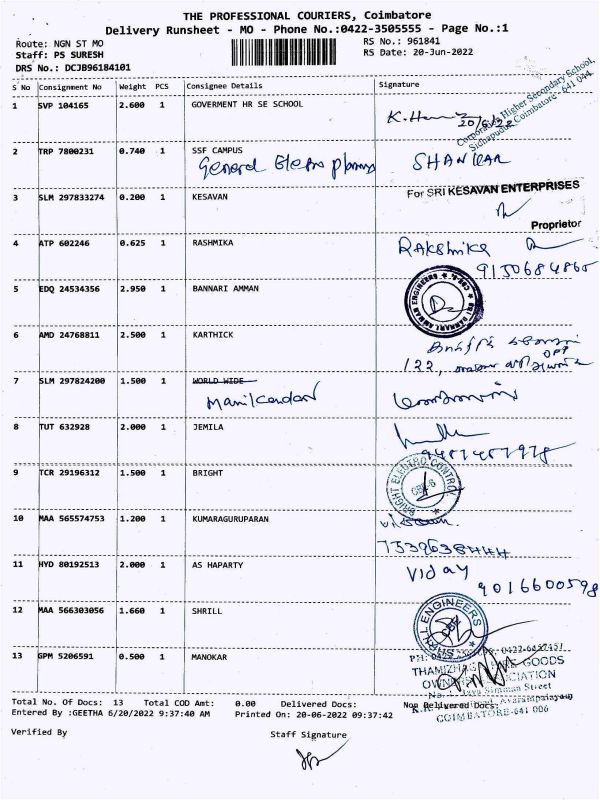 THE PROFESSIONAL COURIERS, Coimbatore
Delivery Runsheet - MO - Phone No.:0422-3505555 - Page No.:1
Route: NGN ST MO
RS No.: 961841
Staff: PS SURESH
RS Date: 20-Jun-2022
DRS No.: DCJB96184101
S No Consignment No Weight PCS Consignee Details Signature
1 SVP 104165 2.600 1 GOVERMENT HR SE SCHOOL
20/6/22
Corporation Higher Secondary School,
Sidhapudur, Coimbatore - 641 044
2 TRP 7800231 0.740 1 SSF CAMPUS
General Electro SHANKAR
3 SLM 297833274 0.200 1 KESAVAN
For SRI KESAVAN ENTERPRISES
Proprietor
4 ATP 602246 0.625 1 RASHMIKA
Rakshmika
9150684865
5 EDQ 24534356 2.950 1 BANNARI AMMAN
SRI BANNARI AMMAN ENGINEERS
6 AMD 24768811 2.500 1 KARTHICK
OPP
122,
7 SLM 297824200 1.500 1 WORLD WIDE
Manikandan
8 TUT 632928 2.000 1 JEMILA
9 TCR 29196312 1.500 1 BRIGHT
BRIGHT ELECTRO CONTROL
CBE-6
10 MAA 565574753 1.200 1 KUMARAGURUPARAN
11 HYD 80192513 2.000 1 AS HAPARTY
Vijay
9016600598
12 MAA 566303056 1.660 1 SHRILL
ENGINEERS
13 GPM 5206591 0.500 1 MANOKAR
GOODS
COIMBATORE-641 006
Total No. Of Docs: 13 Total COD Amt: 0.00 Delivered Docs: Non Delivered Docs:
Entered By :GEETHA 6/20/2022 9:37:40 AM Printed On: 20-06-2022 09:37:42
Verified By Staff Signature